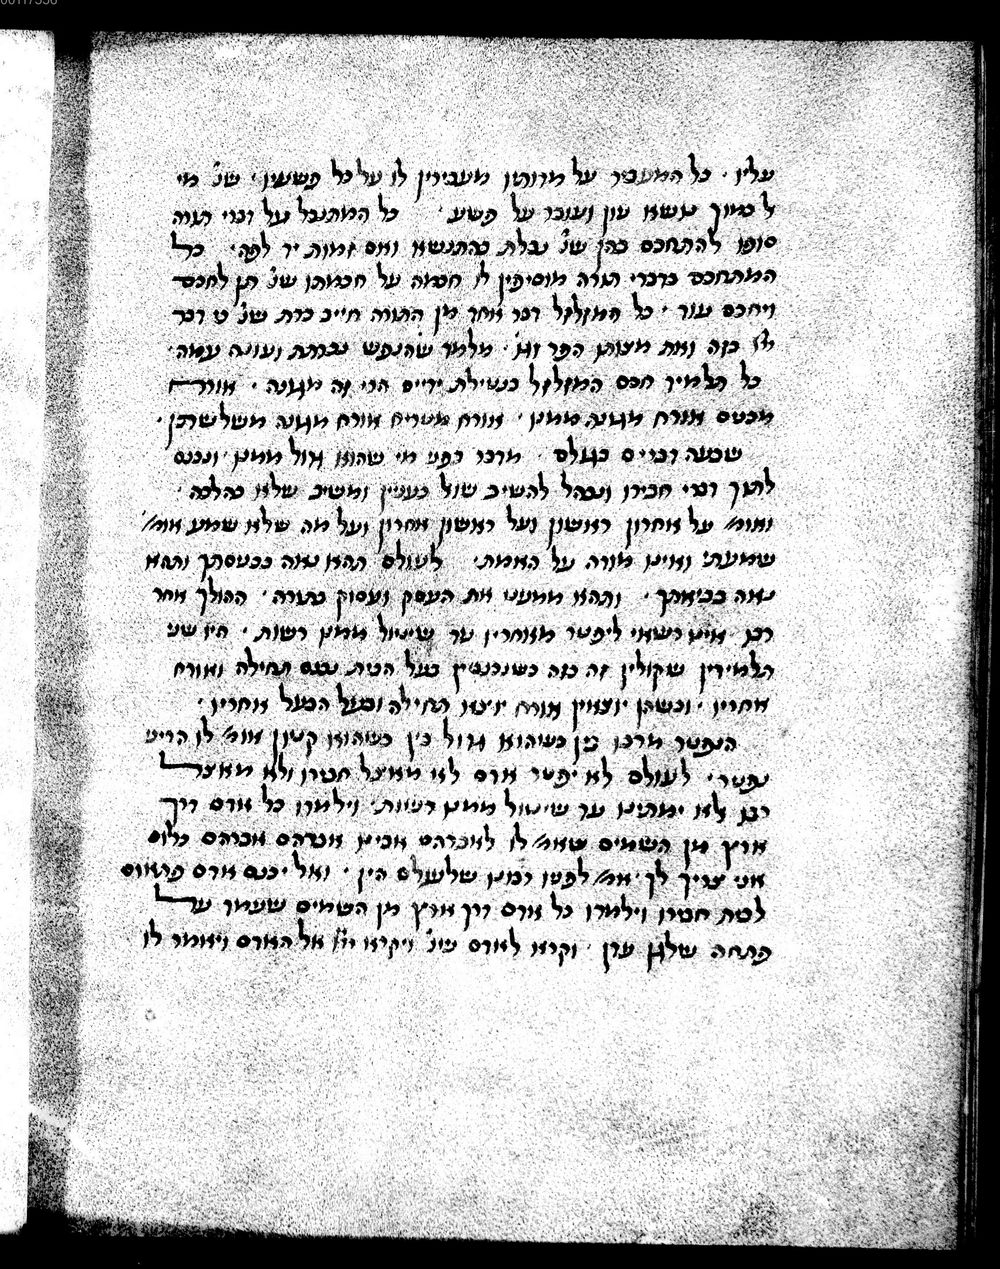 עליו · כל המעביר על מדותיו מעבירין לו על כל פשעיו · שנ' מי
ל כמוך נושא עון ועובר על פשע · כל המתנבל על דברי תורה
סופו להתחכם בהן שנ' נבלת בהתנשא ואם זמות יד לפה · כל
המתחכם בדברי תורה מוסיפין לו חכמה על חכמתו שנ' תן לחכם
ויחכם עוד · כל המקלקל דבר אחד מן התורה חייב כרת שנ' כי דבר
ייי בזה ואת מצותו הפר וג' · מלמד שהנפש נכרתת ועונה עמה ·
כל תלמיד חכם המזלזל בנטילת ידיים הרי זה מגונה · אורח
מכנס אורח מגונה ממנו · אורח מטריח אורח מגונה משלשתן ·
שבעה דברים בגולם · מדבר בפני מי שהוא גדול ממנו · ונכנס
לתוך דברי חבירו ונבהל להשיב שואל כענין ומשיב שלא כהלכה ·
ואומ' על אחרון ראשון ועל ראשון אחרון ועל מה שלא שמע אומ'
שמעתי ואינו מודה על האמת · לעולם תהא נאה בכניסתך ותהא
נאה בביאתך · ותהא ממעט את העסק ועסוק בתורה · ההולך אחר
רבו אינו רשאי ליפטר מאחריו עד שיטול ממנו רשות · היו שני
תלמידין שקולין זה כזה כשנכנסין בעל הבית נכנס תחילה ואורח
אחריו · וכשהן יוצאין אורח יוצא תחילה ובעל הבעל אחריו ·
הנפטר מרבו בין כשהוא גדול בין כשהוא קטון אומ' לו הריני
נפטר · לעולם לא יפטר אדם לא מאצל חבירו ולא מאצל
רבו אלא ימתין עד שיטול ממנו רשות · וילמדו כל אדם דרך
ארץ מן השמים שאמ' לו לאברהם אבינו אברהם אברהם כלום
אני צריך לך אמ' לפניו רבונו שלעולם הין · ואל יכנס אדם פתאום
לבית חבירו וילמדו כל אדם דרך ארץ מן השמים שעמד על
פתחה שלגן עדן · וקרא לאדם שנ' ויקרא ייי אל האדם ויאמר לו